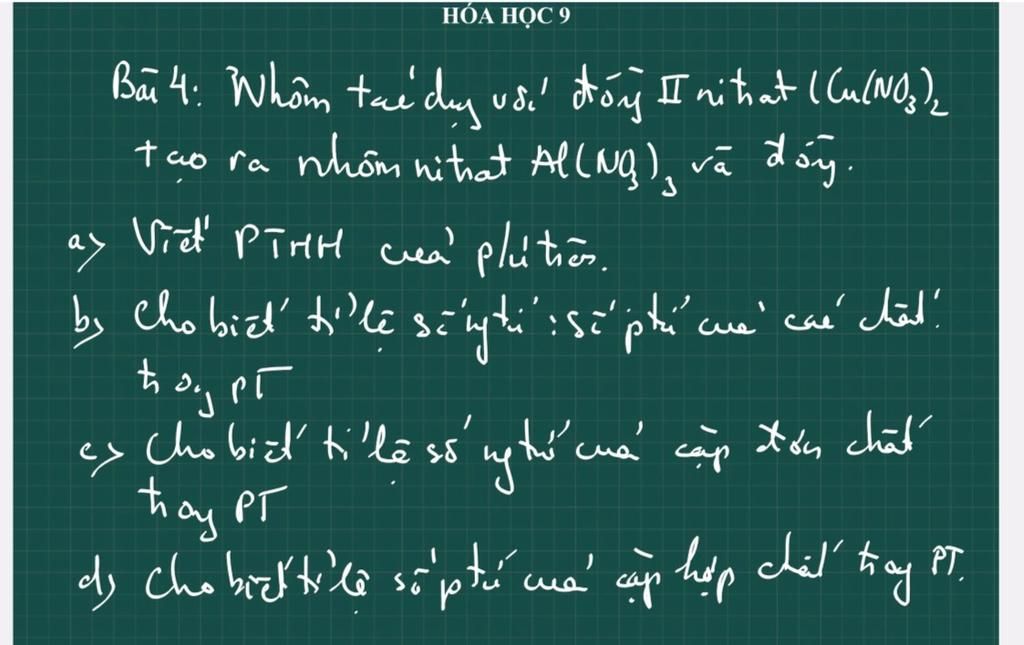 HÓA HỌC 9
Bài 4: Nhôm tác dụng với đồng II nitrat (Cu(NO3)2
tạo ra nhôm nitrat Al(NO3)3 và đồng.
a) Viết PTHH của p/ứ trên.
b) Cho biết tỉ lệ số ng tử : số p tử của các chất
trong PT
c) Cho biết tỉ lệ số ng tử của cặp đơn chất
trong PT
d) Cho biết tỉ lệ số p tử của cặp hợp chất trong PT.